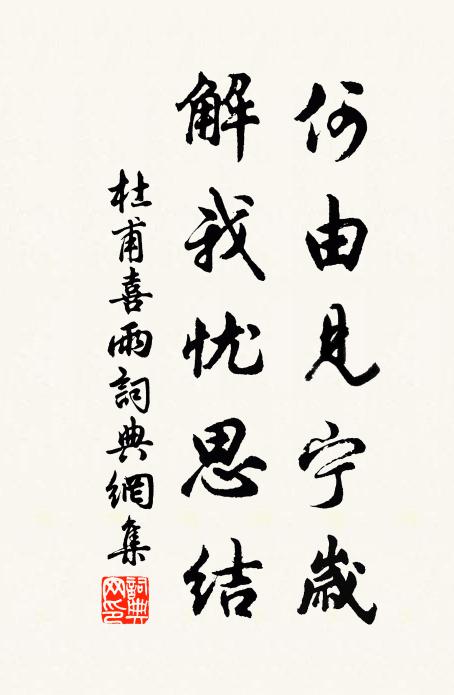 何由見宁歲
解我忧思结
杜甫喜雨詞典網集
詞典網印